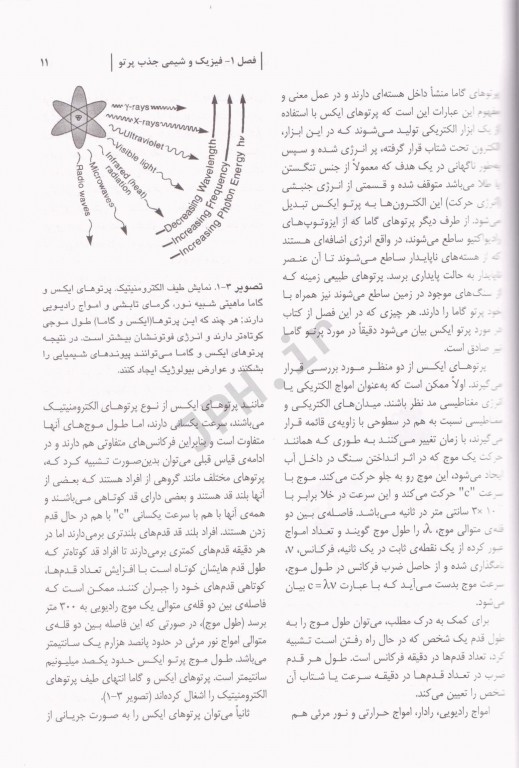 فصل ۱- فیزیک و شیمی جذب پرتو
۱۱
پرتوهای گاما منشأ داخل هسته‌ای دارند و در عمل معنی و
مفهوم این عبارات این است که پرتوهای ایکس با استفاده
از یک ابزار الکتریکی تولید می‌شوند که در این ابزار،
الکترون تحت شتاب قرار گرفته، پر انرژی شده و سپس
به‌طور ناگهانی در یک هدف که معمولاً از جنس تنگستن
یا طلا می‌باشد متوقف شده و قسمتی از انرژی جنبشی
(انرژی حرکت) این الکترون‌ها به پرتو ایکس تبدیل
می‌شود. از طرف دیگر پرتوهای گاما که از ایزوتوپ‌های
رادیواکتیو ساطع می‌شوند، در واقع انرژی اضافه‌ای هستند
که از هسته‌های ناپایدار ساطع می‌شوند تا آن عنصر
ناپایدار به حالت پایداری برسد. پرتوهای طبیعی زمینه که
از سنگ‌های موجود در زمین ساطع می‌شوند نیز همراه با
خود پرتو گاما را دارند. هر چیزی که در این فصل از کتاب
در مورد پرتو ایکس بیان می‌شود دقیقاً در مورد پرتو گاما
نیز صادق است.
پرتوهای ایکس از دو منظر مورد بررسی قرار
می‌گیرند. اولاً ممکن است که به‌عنوان امواج الکتریکی یا
انرژی مغناطیسی مد نظر باشند. میدان‌های الکتریکی و
مغناطیسی نسبت به هم در سطوحی با زاویه‌ی قائمه قرار
می‌گیرند، با زمان تغییر می‌کنند به طوری که همانند
حرکت یک موج که در اثر انداختن سنگ در داخل آب
ایجاد می‌شود، این موج رو به جلو حرکت می‌کند. موج با
سرعت "c" حرکت می‌کند و این سرعت در خلا برابر با
۳×۱۰ سانتی متر در ثانیه می‌باشد. فاصله‌ی بین دو
قله‌ی متوالی موج، λ، را طول موج گویند و تعداد امواج
عبور کرده از یک نقطه‌ی ثابت در یک ثانیه، فرکانس، ν،
نامگذاری شده و از حاصل ضرب فرکانس در طول موج،
سرعت موج بدست می‌آید که با عبارت c = λν بیان
می‌شود.
برای کمک به درک مطلب، می‌توان طول موج را به
طول قدم یک شخص که در حال راه رفتن است تشبیه
کرد، تعداد قدم‌ها در دقیقه فرکانس است. طول هر قدم
ضرب در تعداد قدم‌ها در دقیقه سرعت یا شتاب آن
شخص را تعیین می‌کند.
امواج رادیویی، رادار، امواج حرارتی و نور مرئی هم
γ-rays
X-rays
Ultraviolet
Visible light
Infrared (heat) radiation
Microwaves
Radio waves
Decreasing Wavelength
Increasing Frequency
Increasing Photon Energy hν
تصویر ۳-۱. نمایش طیف الکترومنیتیک. پرتوهای ایکس و
گاما ماهیتی شبیه نور، گرمای تابشی و امواج رادیویی
دارند؛ هر چند که این پرتوها(ایکس و گاما) طول موجی
کوتاه‌تر دارند و انرژی فوتونشان بیشتر است. در نتیجه
پرتوهای ایکس و گاما می‌توانند پیوندهای شیمیایی را
بشکنند و عوارض بیولوژیک ایجاد کنند.
مانند پرتوهای ایکس از نوع پرتوهای الکترومنیتیک
می‌باشند، سرعت یکسانی دارند، اما طول موج‌های آنها
متفاوت است و بنابراین فرکانس‌های متفاوتی هم دارند و در
ادامه‌ی قیاس قبلی می‌توان بدین‌صورت تشبیه کرد که،
پرتوهای مختلف مانند گروهی از افراد هستند که بعضی از
آنها بلند قد هستند و بعضی دارای قد کوتاهی می‌باشند و
همه‌ی آنها با هم با سرعت یکسانی "c" با هم در حال قدم
زدن هستند. افراد بلند قد قدم‌های بلندتری برمی‌دارند اما در
هر دقیقه قدم‌های کمتری برمی‌دارند تا افراد قد کوتاه‌تر که
طول قدم هایشان کوتاه است با افزایش تعداد قدم‌ها،
کوتاهی قدم‌های خود را جبران کنند. ممکن است که
فاصله‌ی بین دو قله‌ی متوالی یک موج رادیویی به ۳۰۰ متر
برسد (طول موج)، در صورتی که این فاصله بین دو قله‌ی
متوالی امواج نور مرئی در حدود پانصد هزارم یک سانتیمتر
می‌باشد. طول موج پرتو ایکس حدود یکصد میلیونیم
سانتیمتر است. پرتوهای ایکس و گاما انتهای طیف پرتوهای
الکترومنیتیک را اشغال کرده‌اند (تصویر ۳-۱).
ثانیاً می‌توان پرتوهای ایکس را به صورت جریانی از
JPH.ir